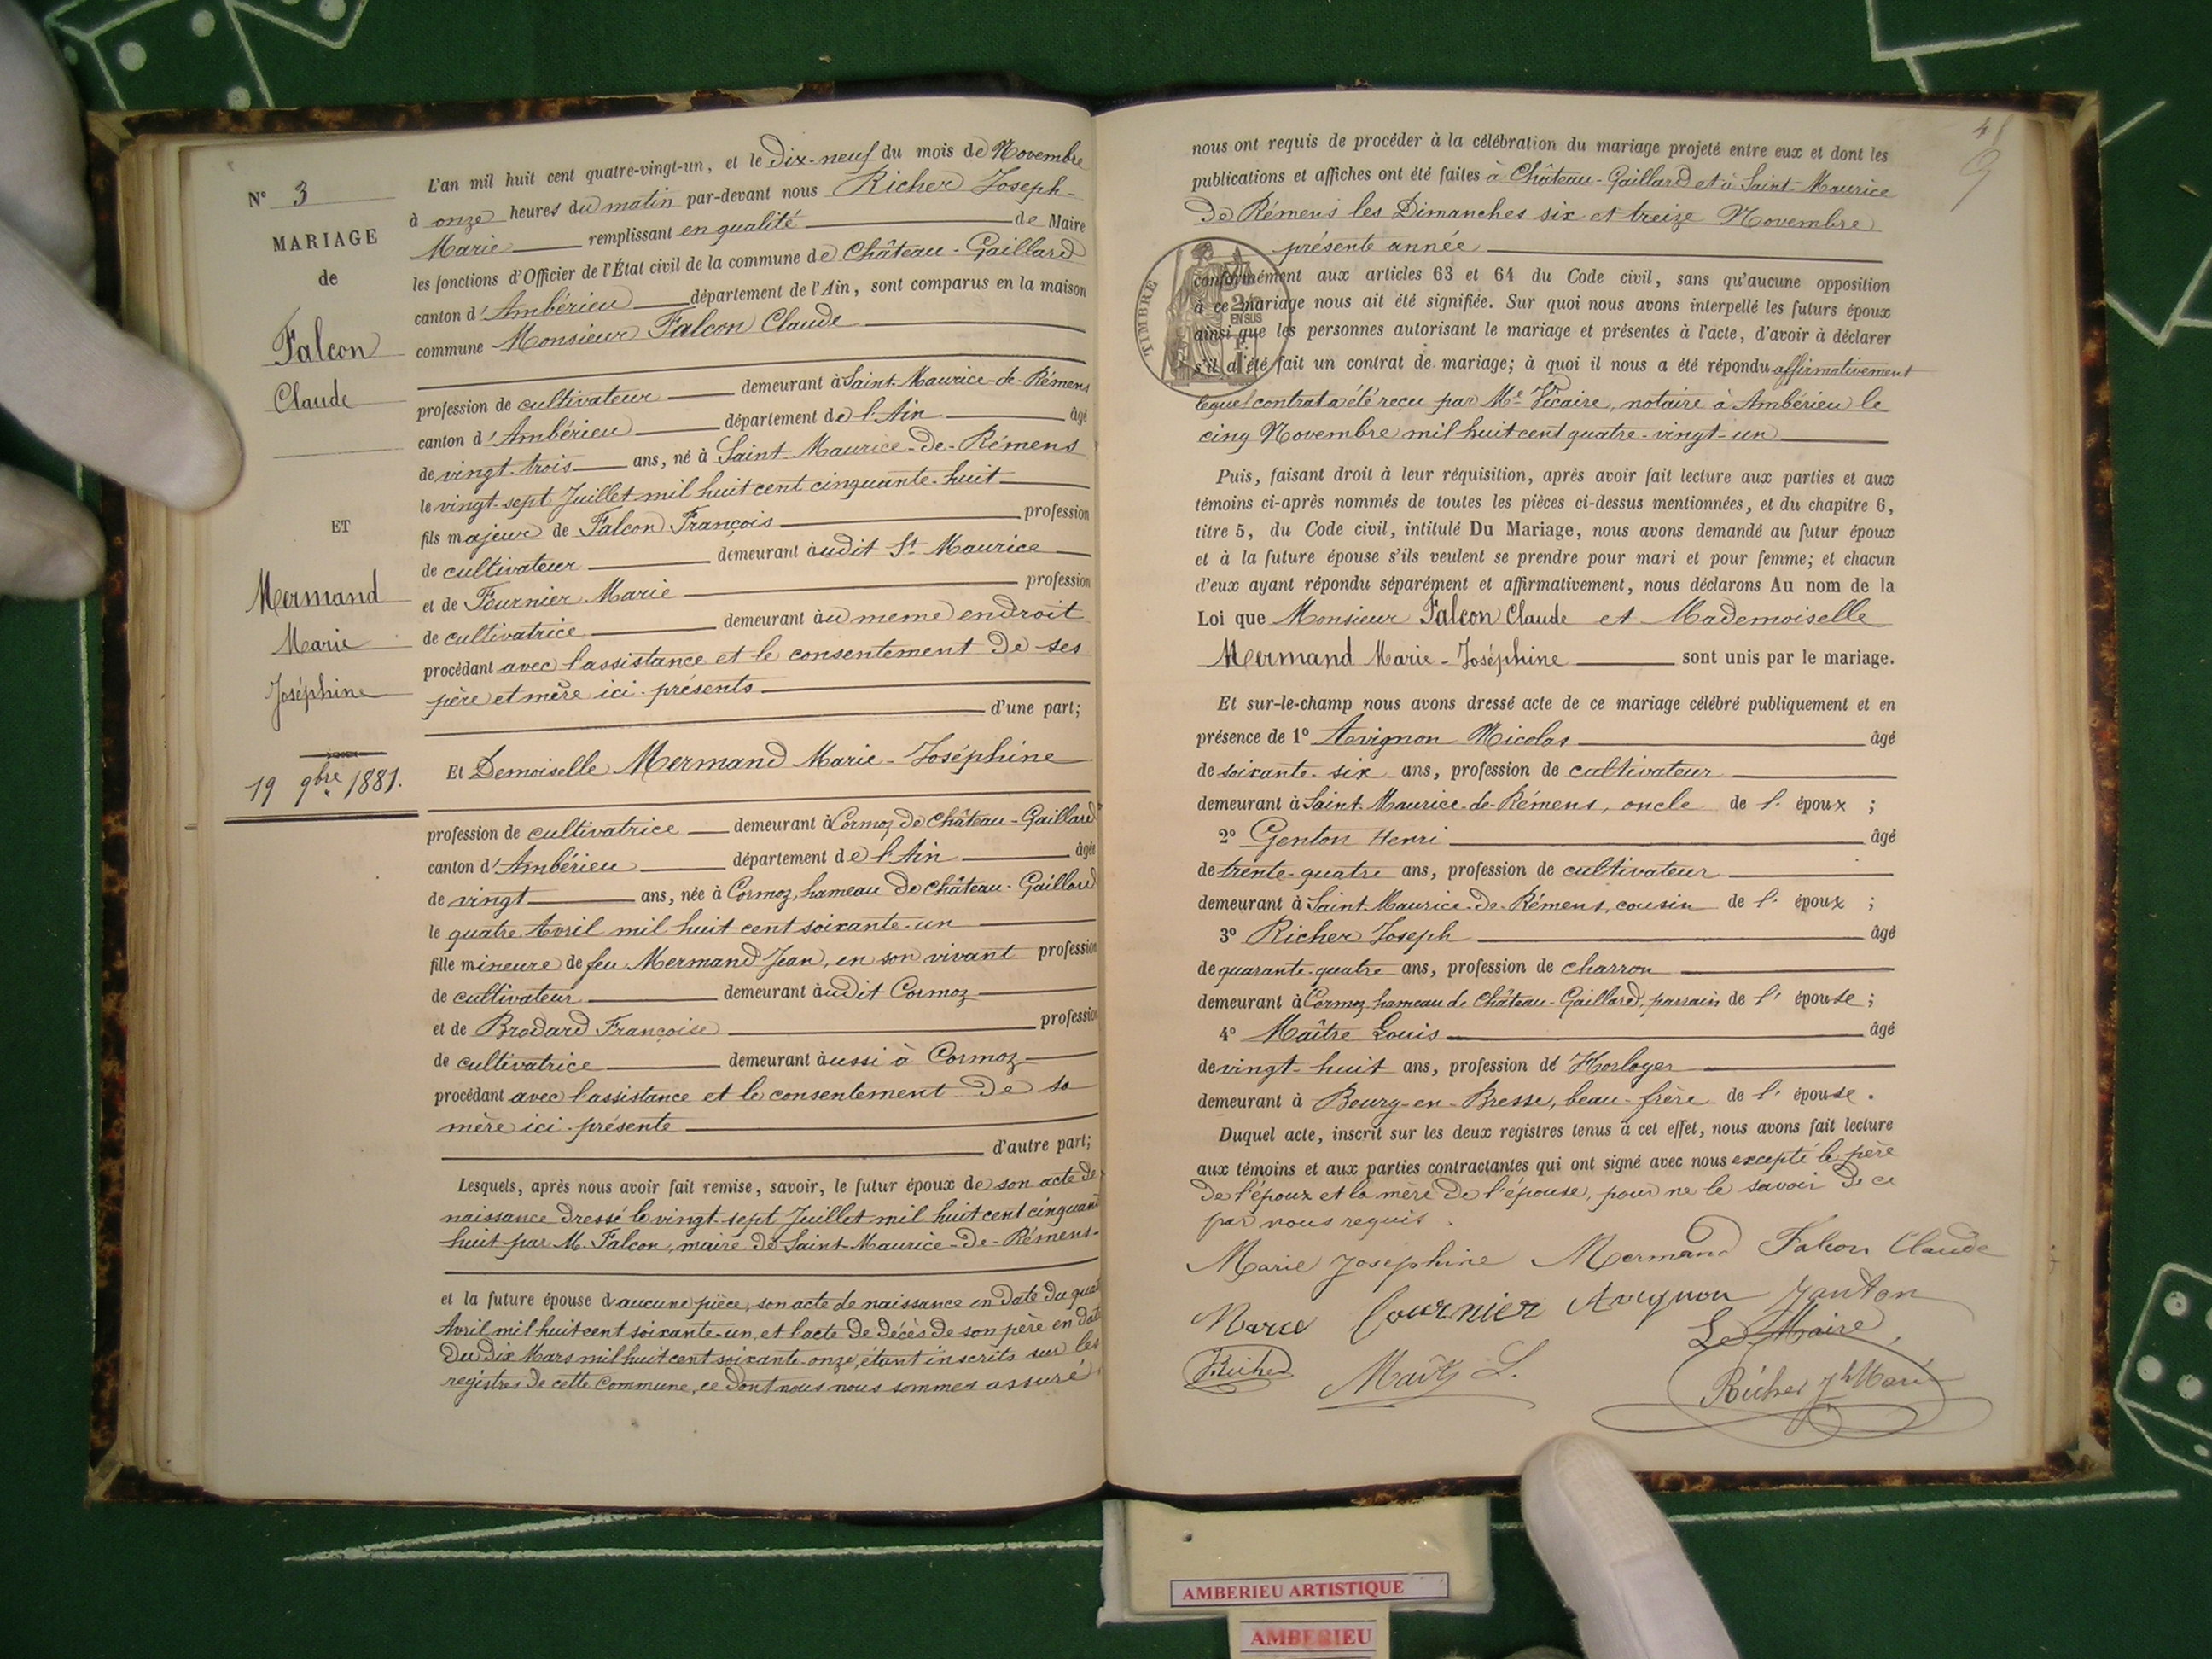 N° 3
MARIAGE
de
Falcon
Claude
ET
Mermand
Marie
Joséphine
19 9bre 1881.
L'an mil huit cent quatre-vingt-un, et le Dix-neuf du mois de Novembre
à onze heures du matin par-devant nous Richer Joseph-
Marie remplissant en qualité de Maire
les fonctions d'Officier de l'État civil de la commune de Château-Gaillard
canton d'Ambérieu département de l'Ain, sont comparus en la maison
commune Monsieur Falcon Claude
profession de cultivateur demeurant à Saint-Maurice-de-Rémens
canton d'Ambérieu département de l'Ain âgé
de vingt-trois ans, né à Saint-Maurice-de-Rémens
le vingt-sept Juillet mil huit cent cinquante-huit
fils majeur de Falcon François profession
de cultivateur demeurant audit St Maurice
et de Fournier Marie profession
de cultivatrice demeurant au meme endroit
procédant avec l'assistance et le consentement de ses
père et mère ici-présents
d'une part;
Et Demoiselle Mermand Marie-Joséphine
profession de cultivatrice demeurant à Cormoz de Château-Gaillard
canton d'Ambérieu département de l'Ain âgée
de vingt ans, née à Cormoz, hameau de Château-Gaillard
le quatre Avril mil huit cent soixante-un
fille mineure de feu Mermand Jean, en son vivant profession
de cultivateur demeurant audit Cormoz
et de Brodard Françoise profession
de cultivatrice demeurant aussi à Cormoz
procédant avec l'assistance et le consentement de sa
mère ici-présente
d'autre part;
Lesquels, après nous avoir fait remise, savoir, le futur époux de son acte de
naissance dressé le vingt-sept Juillet mil huit cent cinquante
huit par M. Falcon, maire de Saint-Maurice-de-Rémens-
et la future épouse d'aucune pièce, son acte de naissance en date du quatre
Avril mil huit cent soixante-un, et l'acte de décès de son père en date
du dix Mars mil huit cent soixante-onze, étant inscrits sur les
registres de cette commune, ce dont nous nous sommes assuré
nous ont requis de procéder à la célébration du mariage projeté entre eux et dont les
publications et affiches ont été faites à Château-Gaillard et à Saint-Maurice
de Rémens les Dimanches six et treize Novembre
présente année
TIMBRE
EN SUS
conformément aux articles 63 et 64 du Code civil, sans qu'aucune opposition
à ce mariage nous ait été signifiée. Sur quoi nous avons interpellé les futurs époux
ainsi que les personnes autorisant le mariage et présentes à l'acte, d'avoir à déclarer
s'il a été fait un contrat de mariage; à quoi il nous a été répondu affirmativement
lequel contrat a été reçu par Me Vicaire, notaire à Ambérieu le
cinq Novembre mil huit cent quatre-vingt-un
Puis, faisant droit à leur réquisition, après avoir fait lecture aux parties et aux
témoins ci-après nommés de toutes les pièces ci-dessus mentionnées, et du chapitre 6,
titre 5, du Code civil, intitulé Du Mariage, nous avons demandé au futur époux
et à la future épouse s'ils veulent se prendre pour mari et pour femme; et chacun
d'eux ayant répondu séparément et affirmativement, nous déclarons Au nom de la
Loi que Monsieur Falcon Claude et Mademoiselle
Mermand Marie-Joséphine sont unis par le mariage.
Et sur-le-champ nous avons dressé acte de ce mariage célébré publiquement et en
présence de 1° Avignon Nicolas âgé
de soixante-six ans, profession de cultivateur
demeurant à Saint-Maurice-de-Rémens, oncle de l'époux ;
2° Genton Henri âgé
de trente-quatre ans, profession de cultivateur
demeurant à Saint-Maurice-de-Rémens, cousin de l'époux ;
3° Richer Joseph âgé
de quarante-quatre ans, profession de charron
demeurant à Cormoz hameau de Château-Gaillard, parrain de l'épouse ;
4° Maître Louis âgé
de vingt-huit ans, profession de Horloger
demeurant à Bourg-en-Bresse, beau-frère de l'épouse.
Duquel acte, inscrit sur les deux registres tenus à cet effet, nous avons fait lecture
aux témoins et aux parties contractantes qui ont signé avec nous excepté le père
de l'époux et la mère de l'épouse, pour ne le savoir de ce
par nous requis.
Marie Josephine Mermand Falcon Claude
Marie fournier Avignon Janton
Le Maire,
Richer
L.
Richer Jh Marie
AMBERIEU ARTISTIQUE
AMBERIEU